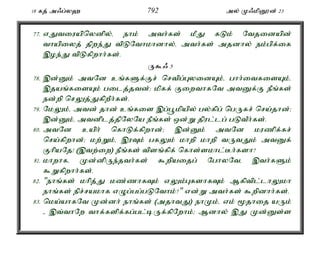 18 கத் அஃப்லஹ 792 அல் முஃமினூன் 23
77. எதுவரையிலெனில், நாம் அவர்கள் மீது கடும் வேதனையின்
வாயிலைத் திறந்து விடுவோமானால், அவர்கள் அதனால் நம்பிக்கை
இழந்து விடுகிறார்கள்.
ருகூஃ 5
78. இன்னும் அவனே உங்களுக்குச் செவிப்புலனையும், பார்வைகளையும்,
இதயங்களையும் படைத்தவன்; மிகக் குறைவாகவே அவனுக்கு நீங்கள்
நன்றி செலுத்துகிறீர்கள்.
79. மேலும், அவன் தான் உங்களை இப்பூமியில் பல்கிப் பெருகச் செய்தான்;
இன்னும், அவனிடத்திலேயே நீங்கள் ஒன்று திரட்டப் படுவீர்கள்.
80. அவனே உயிர் கொடுக்கிறான்; இன்னும் அவனே மரணிக்கச்
செய்கிறான்; மற்றும், இரவும் பகலும் மாறி மாறி வருவதும் அவனுக்
குரியதே; (இவற்றை) நீங்கள் விளங்கிக் கொள்ளமாட்டீர்களா?
81. மாறாக, முன்னிருந்தவர்கள் கூறியதைப் போலவே, இவர்களும்
கூறுகிறார்கள்.
82. "நாங்கள் மரித்து மண்ணாகவும் எலும்புகளாகவும் ஆகிவிட்டாலுமா
நாங்கள் நிச்சயமாக எழுப்பப்படுவோம்?" என்று அவர்கள் கூறினார்கள்.
83. மெய்யாகவே முன்னர் நாங்கள் (அதாவது) நாமும், எம் மூதாதை யரும்
, இவ்வாறே வாக்களிக்கப்பட்டிருக்கிறோம்; ஆனால் இது முன்னுள்ள